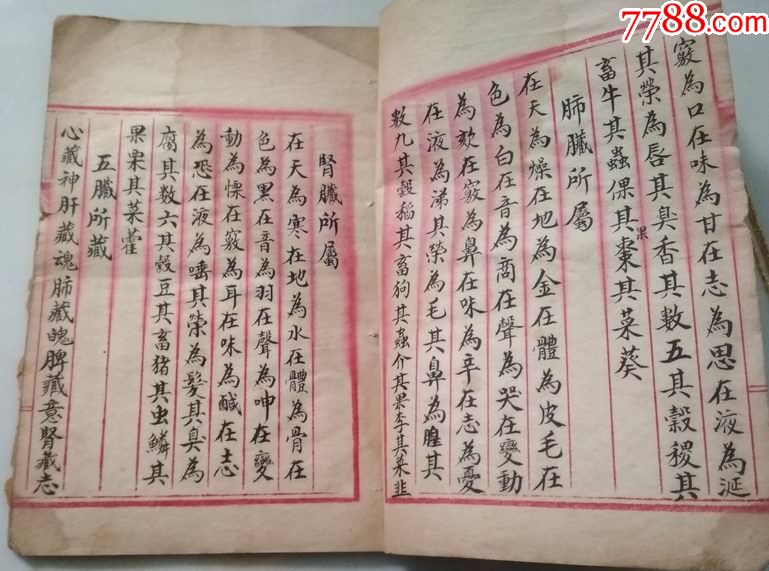 7788.com
竅為口在味為甘在志為思在液為涎
其榮為唇其臭香其數五其穀稷其
畜牛其蟲倮其棗其菜葵
果
肺臟所屬
在天為燥在地為金在體為皮毛在
色為白在音為商在聲為哭在變動
為欬在竅為鼻在味為辛在志為憂
在液為涕其榮為毛其鼻為腥其
數九其穀稻其畜狗其蟲介其果李其菜韭
腎臟所屬
在天為寒在地為水在體為骨在
色為黑在音為羽在聲為呻在變
動為慄在竅為耳在味為鹹在志
為恐在液為唾其榮為髮其臭為
腐其數六其穀豆其畜猪其虫鱗其
果栗其菜藿
五臟所藏
心藏神肝藏魂肺藏魄脾藏意腎藏志